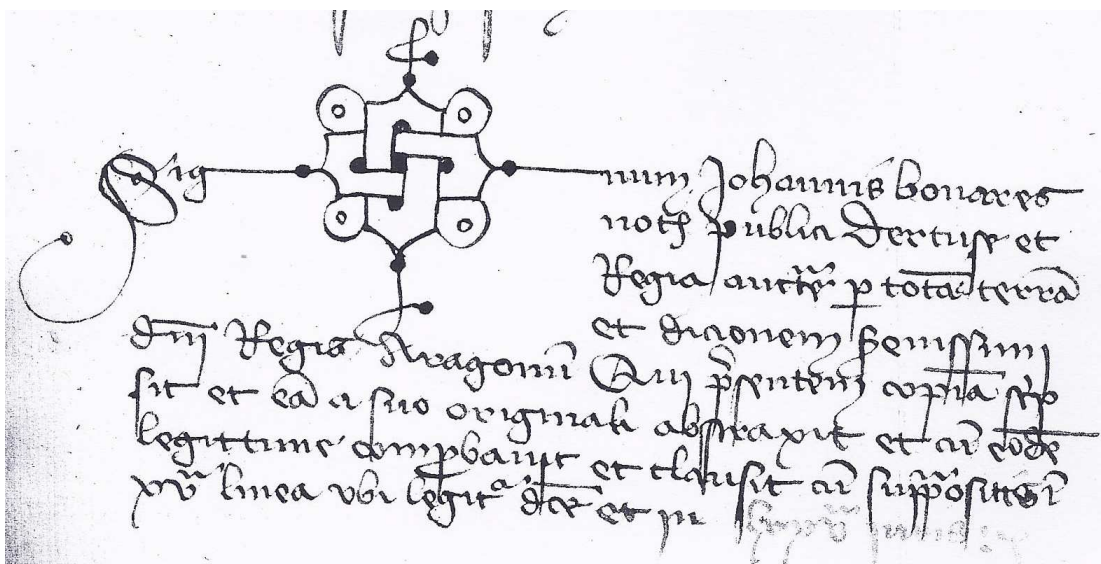 Sig num Johannis bonares
noth publici Dertuse et
Regia aucte p totā terrā
et dicionem Serenissimi
dnī Regis Aragonū Qui pn̄sentem copiā scrip
sit et eā a suo originali abstraxit et cū eodē
legittime comprobavit et clausit cū supposītis ī
xvͣ linea ubi legitᵒ dce et in